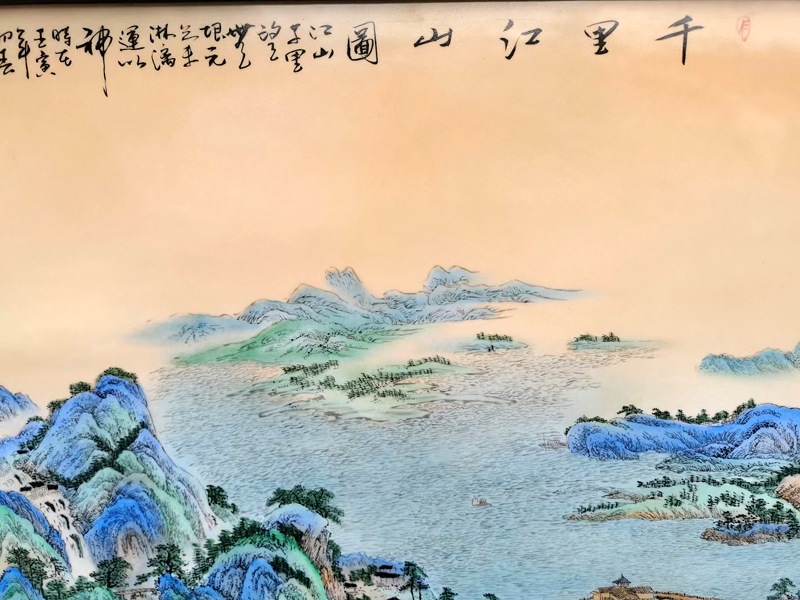 千里江山圖
江山
千里
望
無
垠元
氣
淋漓
運以
神
時在
壬寅
年